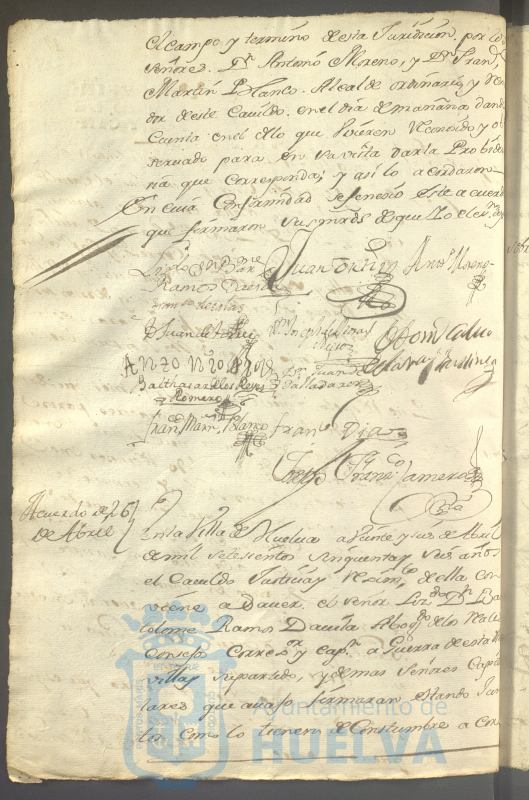 el campo, y termino de esta Juridicion, por los
señores. Dn. Antonio Moreno, y Dn. Fran.
Martin Blanco. Alcalde ordinario, y
dor de este Cavildo. en el dia de mañana dan
Cuenta en el dlo que huvieren reconosido y o
servado para en su vista dar la Probiden
zia que corresponda; y asi lo acordaron
En cuia Conformidad se fenecio este acuerdo
que firmaron sus mrds de que Yo el es.no doy
Juan Ortiz Anto. Moreno
Ramos Davila
Dn. Juan de
Balthasar de los Reyes
Romero
Dn. Juan de
Valladares
Fran.co Marn. Blanco Franco Diaz
Franco Camero
Acuerdo de 26
de Abril
En la Villa de Huelva a veinte y seis de Abril
de mil setesientos sinquenta y seis años
el Cavildo Justicia y Reximto. de ella con
viene a saver. el señor Lizdo. Dn. Bar
tolome Ramos Davila. Abogdo. de los Reales
Consejos Correxor. y Capn. a Guerra de esta
villa y su partido, y demas Señores Capitu
lares que avajo firmaran estando Jun
tos como lo tienen de Costumbre a Con
Ayuntamiento de
HUELVA